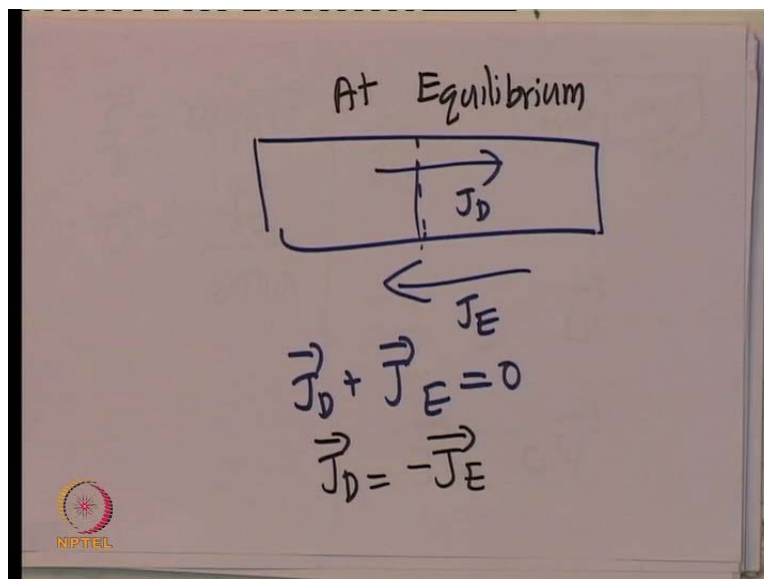 At Equilibrium
J_D
J_E
\vec{J}_D + \vec{J}_E = 0
\vec{J}_D = -\vec{J}_E
NPTEL